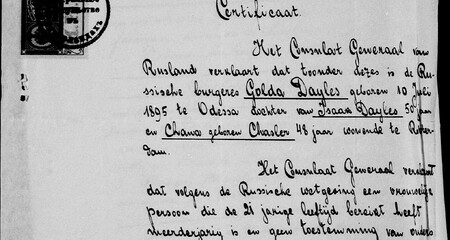 Certificaat.
Het Consulaat Generaal van
Rusland verklaart dat toonder dezes is de Rus-
sische burgeres Golda Dayles geboren 10 Juli
1895 te Odessa dochter van Isaac Dayles 50 jaar
en Chawe geboren Chasler 48 jaar wonende te Rotter-
dam.
Het Consulaat Generaal verklaart
dat volgens de Russische wetgeving een vrouwelijk
persoon die de 21 jarige leeftijd bereikt heeft
meerderjarig is en geen toestemming van ouders